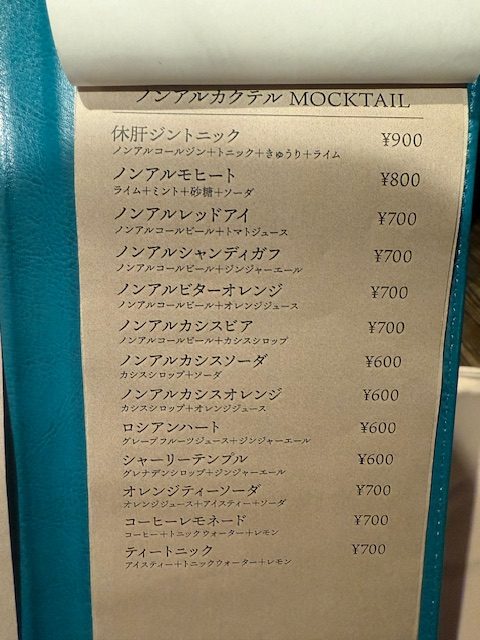 ノンアルカクテル MOCKTAIL
休肝ジントニック ¥900
ノンアルコールジン+トニック+きゅうり+ライム
ノンアルモヒート ¥800
ライム+ミント+砂糖+ソーダ
ノンアルレッドアイ ¥700
ノンアルコールビール+トマトジュース
ノンアルシャンディガフ ¥700
ノンアルコールビール+ジンジャーエール
ノンアルビターオレンジ ¥700
ノンアルコールビール+オレンジジュース
ノンアルカシスビア ¥700
ノンアルコールビール+カシスシロップ
ノンアルカシスソーダ ¥600
カシスシロップ+ソーダ
ノンアルカシスオレンジ ¥600
カシスシロップ+オレンジジュース
ロシアンハート ¥600
グレープフルーツジュース+ジンジャーエール
シャーリーテンプル ¥600
グレナデンシロップ+ジンジャーエール
オレンジティーソーダ ¥700
オレンジジュース+アイスティー+ソーダ
コーヒーレモネード ¥700
コーヒー+トニックウォーター+レモン
ティートニック ¥700
アイスティー+トニックウォーター+レモン